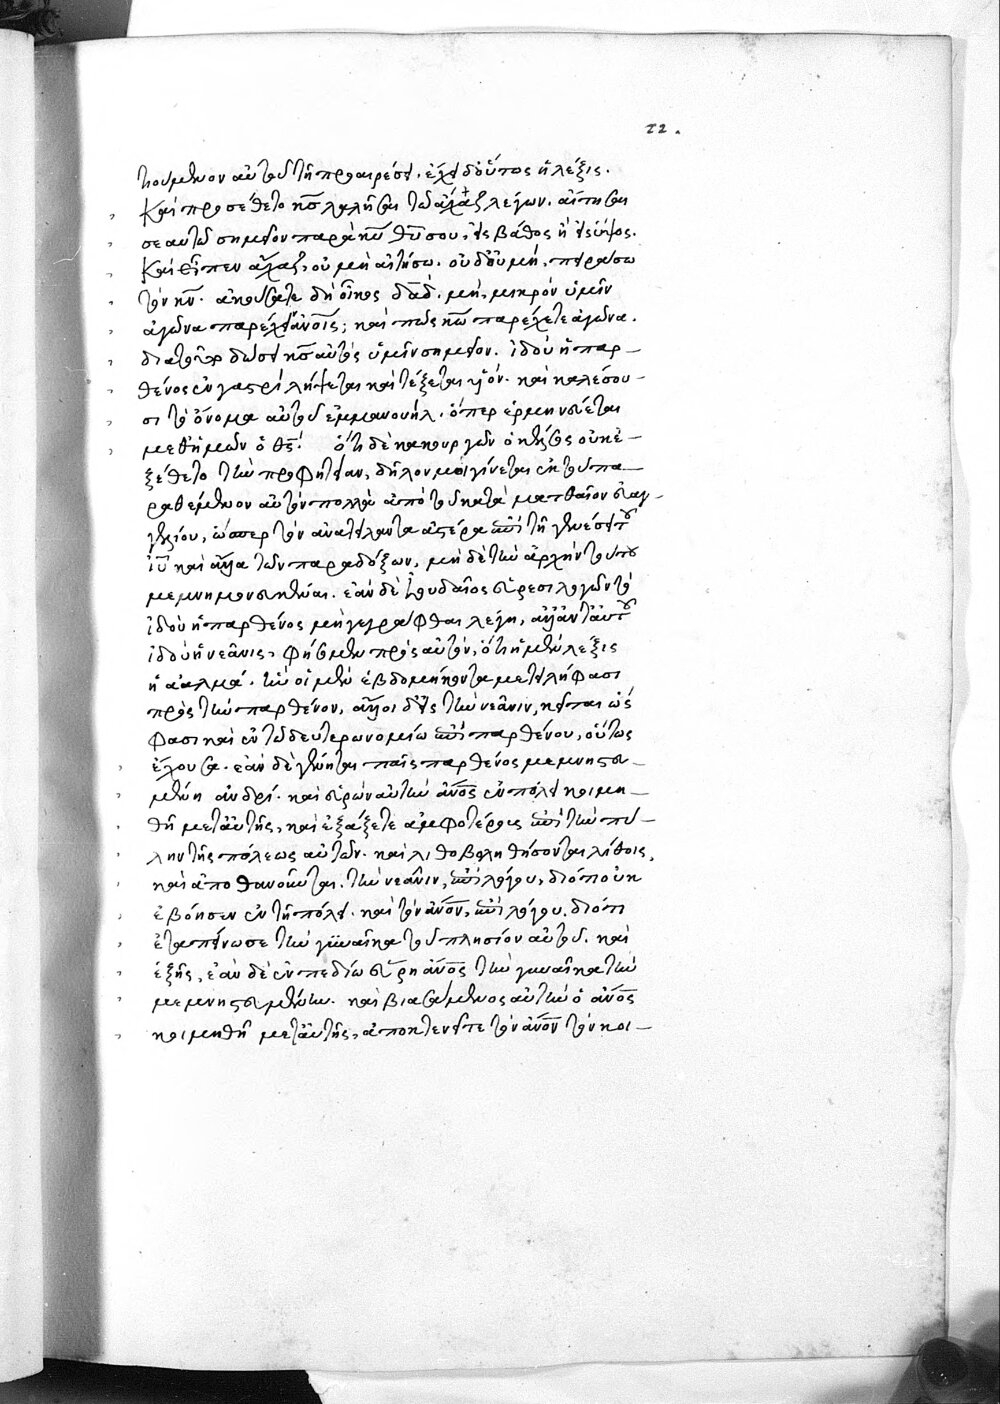 22.
τουμένον αὐτοῦ τῇ προαιρέσει. ἔχει δὲ οὕτως ἡ λέξις.
Καὶ προσέθετο κς λαλῆσαι τῷ ἄχαζ λέγων. αἴτησαι
σεαυτῷ σημεῖον παρὰ κυ θυ σου, εἰς βάθος ἢ εἰς ὕψος.
καὶ εἶπεν ἄχαζ, οὐ μὴ αἰτήσω. οὐδ' οὐ μὴ πειράσω
τὸν κν. ἀκούσατε δὴ οἶκος δαδ. μὴ μικρὸν ὑμῖν
ἀγῶνα παρέχειν ἀνοις; καὶ πῶς κω παρέχετε ἀγῶνα.
διατοῦτο δώσει κς αὐτὸς ὑμῖν σημεῖον. ἰδοὺ ἡ παρ-
θένος ἐν γαστρὶ λήψεται καὶ τέξεται υἱόν. καὶ καλέσου-
σι τὸ ὄνομα αὐτοῦ ἐμμανουήλ. ὅπερ ἑρμηνεύεται
μεθ' ἡμῶν ὁ θς. ὅτι δὲ κακουργῶν ὁ κέλσος οὐκ ἐ-
ξέθετο τὴν προφητείαν, δῆλόν μοι γίνεται ἐκ τοῦ πα-
ραθέμενον αὐτὸν πολλὰ ἀπὸ τοῦ κατὰ ματθαῖον εὐαγ-
γελίου, ὥσπερ τὸν ἀνατείλαντα ἀστέρα ἐπὶ τῇ γενέσει τοῦ
ιυ καὶ ἄλλα τῶν παραδόξων, μηδὲ τὴν ἀρχὴν τούτου
μεμνημονευκέναι. ἐὰν δὲ ἰουδαῖος εὑρεσιλογῶν τὸ
ἰδοὺ ἡ παρθένος μὴ γεγράφθαι λέγῃ, ἀλλ' ἀντ' αὐτοῦ
ἰδοὺ ἡ νεᾶνις, φήσομεν πρὸς αὐτὸν, ὅτι ἡ μὲν λέξις
ἡ ἀαλμά. ἣν οἱ μὲν ἑβδομήκοντα μετειλήφασι
πρὸς τὴν παρθένον, ἄλλοι δ' εἰς τὴν νεᾶνιν, κεῖται ὥς
φασι καὶ ἐν τῷ δευτερονομίῳ ἐπὶ παρθένου, οὕτως
ἔχουσα. ἐὰν δὲ γένηται παῖς παρθένος μεμνηστευ-
μένη ἀνδρί. καὶ εὑρὼν αὐτὴν ανος ἐν πόλει κοιμη-
θῇ μετ' αὐτῆς, καὶ ἐξάξετε ἀμφοτέρους ἐπὶ τὴν πύ-
λην τῆς πόλεως αὐτῶν. καὶ λιθοβοληθήσονται λίθοις,
καὶ ἀποθανοῦνται. τὴν νεᾶνιν, ἐπὶ λόγου, διότι οὐκ
ἐβόησεν ἐν τῇ πόλει. καὶ τὸν ανον, ἐπὶ λόγου διότι
ἐταπείνωσε τὴν γυναῖκα τοῦ πλησίον αὐτοῦ. καὶ
ἑξῆς, ἐὰν δὲ ἐν πεδίῳ εὕρῃ ανος τὴν γυναῖκα τὴν
μεμνηστευμένην. καὶ βιασάμενος αὐτὴν ὁ ανος
κοιμηθῇ μετ' αὐτῆς, ἀποκτενεῖτε τὸν ανον τὸν κοι-